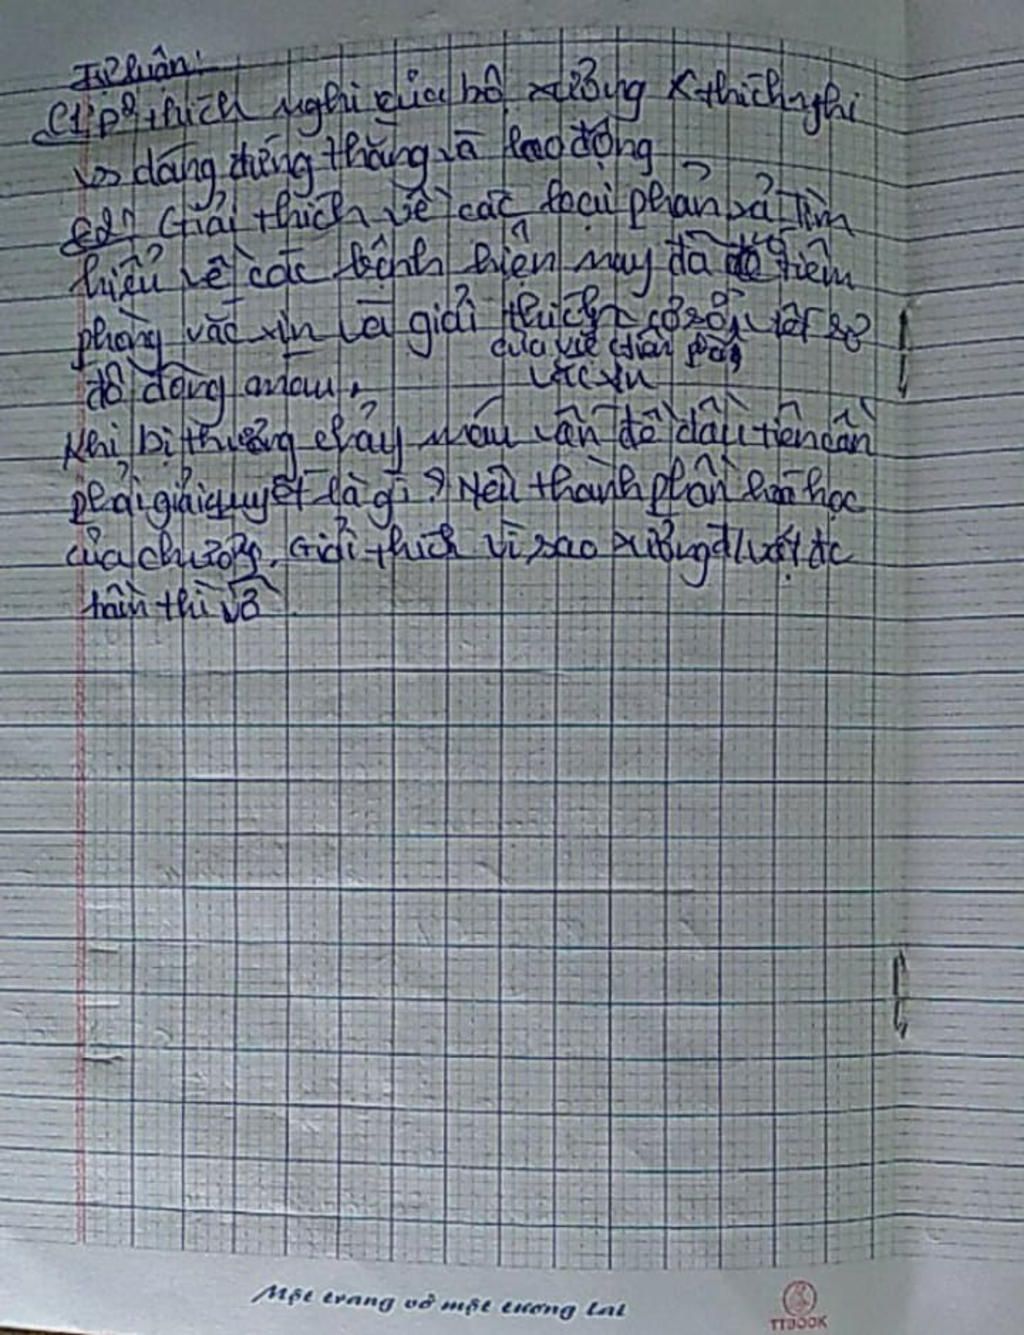 Tự luận:
C1: P² thích nghi của bộ xương thích nghi
vs dáng đứng thẳng và lao động
C2: Giải thích về các loại phản xạ Tìm
hiểu về các bệnh hiện nay đã tiêm
phòng vắc xin và giải thích cơ sở sơ
của việc tiêm phòng
vắc xin
đồ đông máu,
Khi bị thương chảy máu vấn đề đầu tiên cần
phải giải quyết là gì? Nêu thành phần hoá học
của xương. Giải thích vì sao xương đ
hầm thì vỡ
Một trang vở một tương lai
TTBOOK